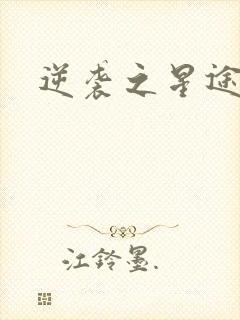 逆袭之星途
江铃墨.